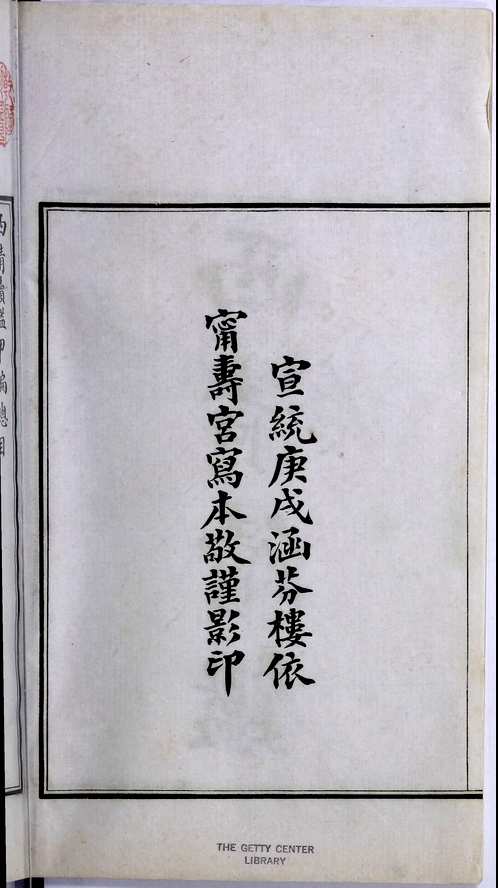 宣統庚戌涵芬樓依
甯壽宮寫本敬謹影印
西清續鑑甲編總目
THE GETTY CENTER
LIBRARY